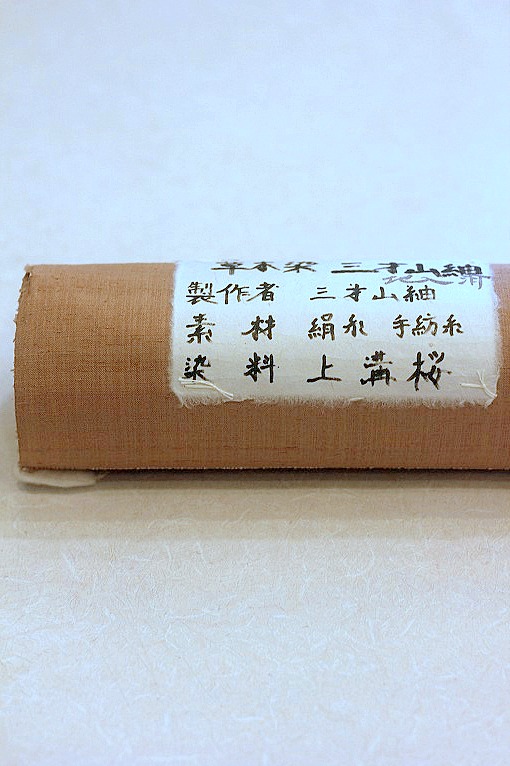 草木染 三才山紬
製作者 三才山紬
素材 絹糸 手紡糸
染料 上溝桜